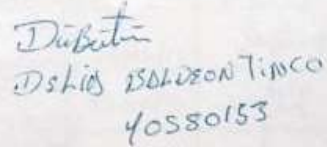 Delia BALDEON TINCO
40580153